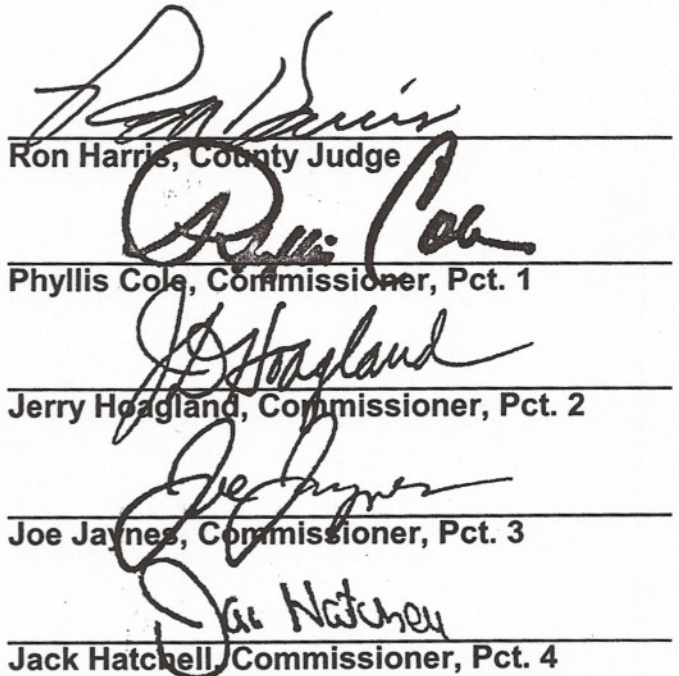 Ron Harris
Ron Harris, County Judge
Phyllis Cole
Phyllis Cole, Commissioner, Pct. 1
JD Hoagland
Jerry Hoagland, Commissioner, Pct. 2
Joe Jaynes
Joe Jaynes, Commissioner, Pct. 3
Jack Hatchell
Jack Hatchell, Commissioner, Pct. 4